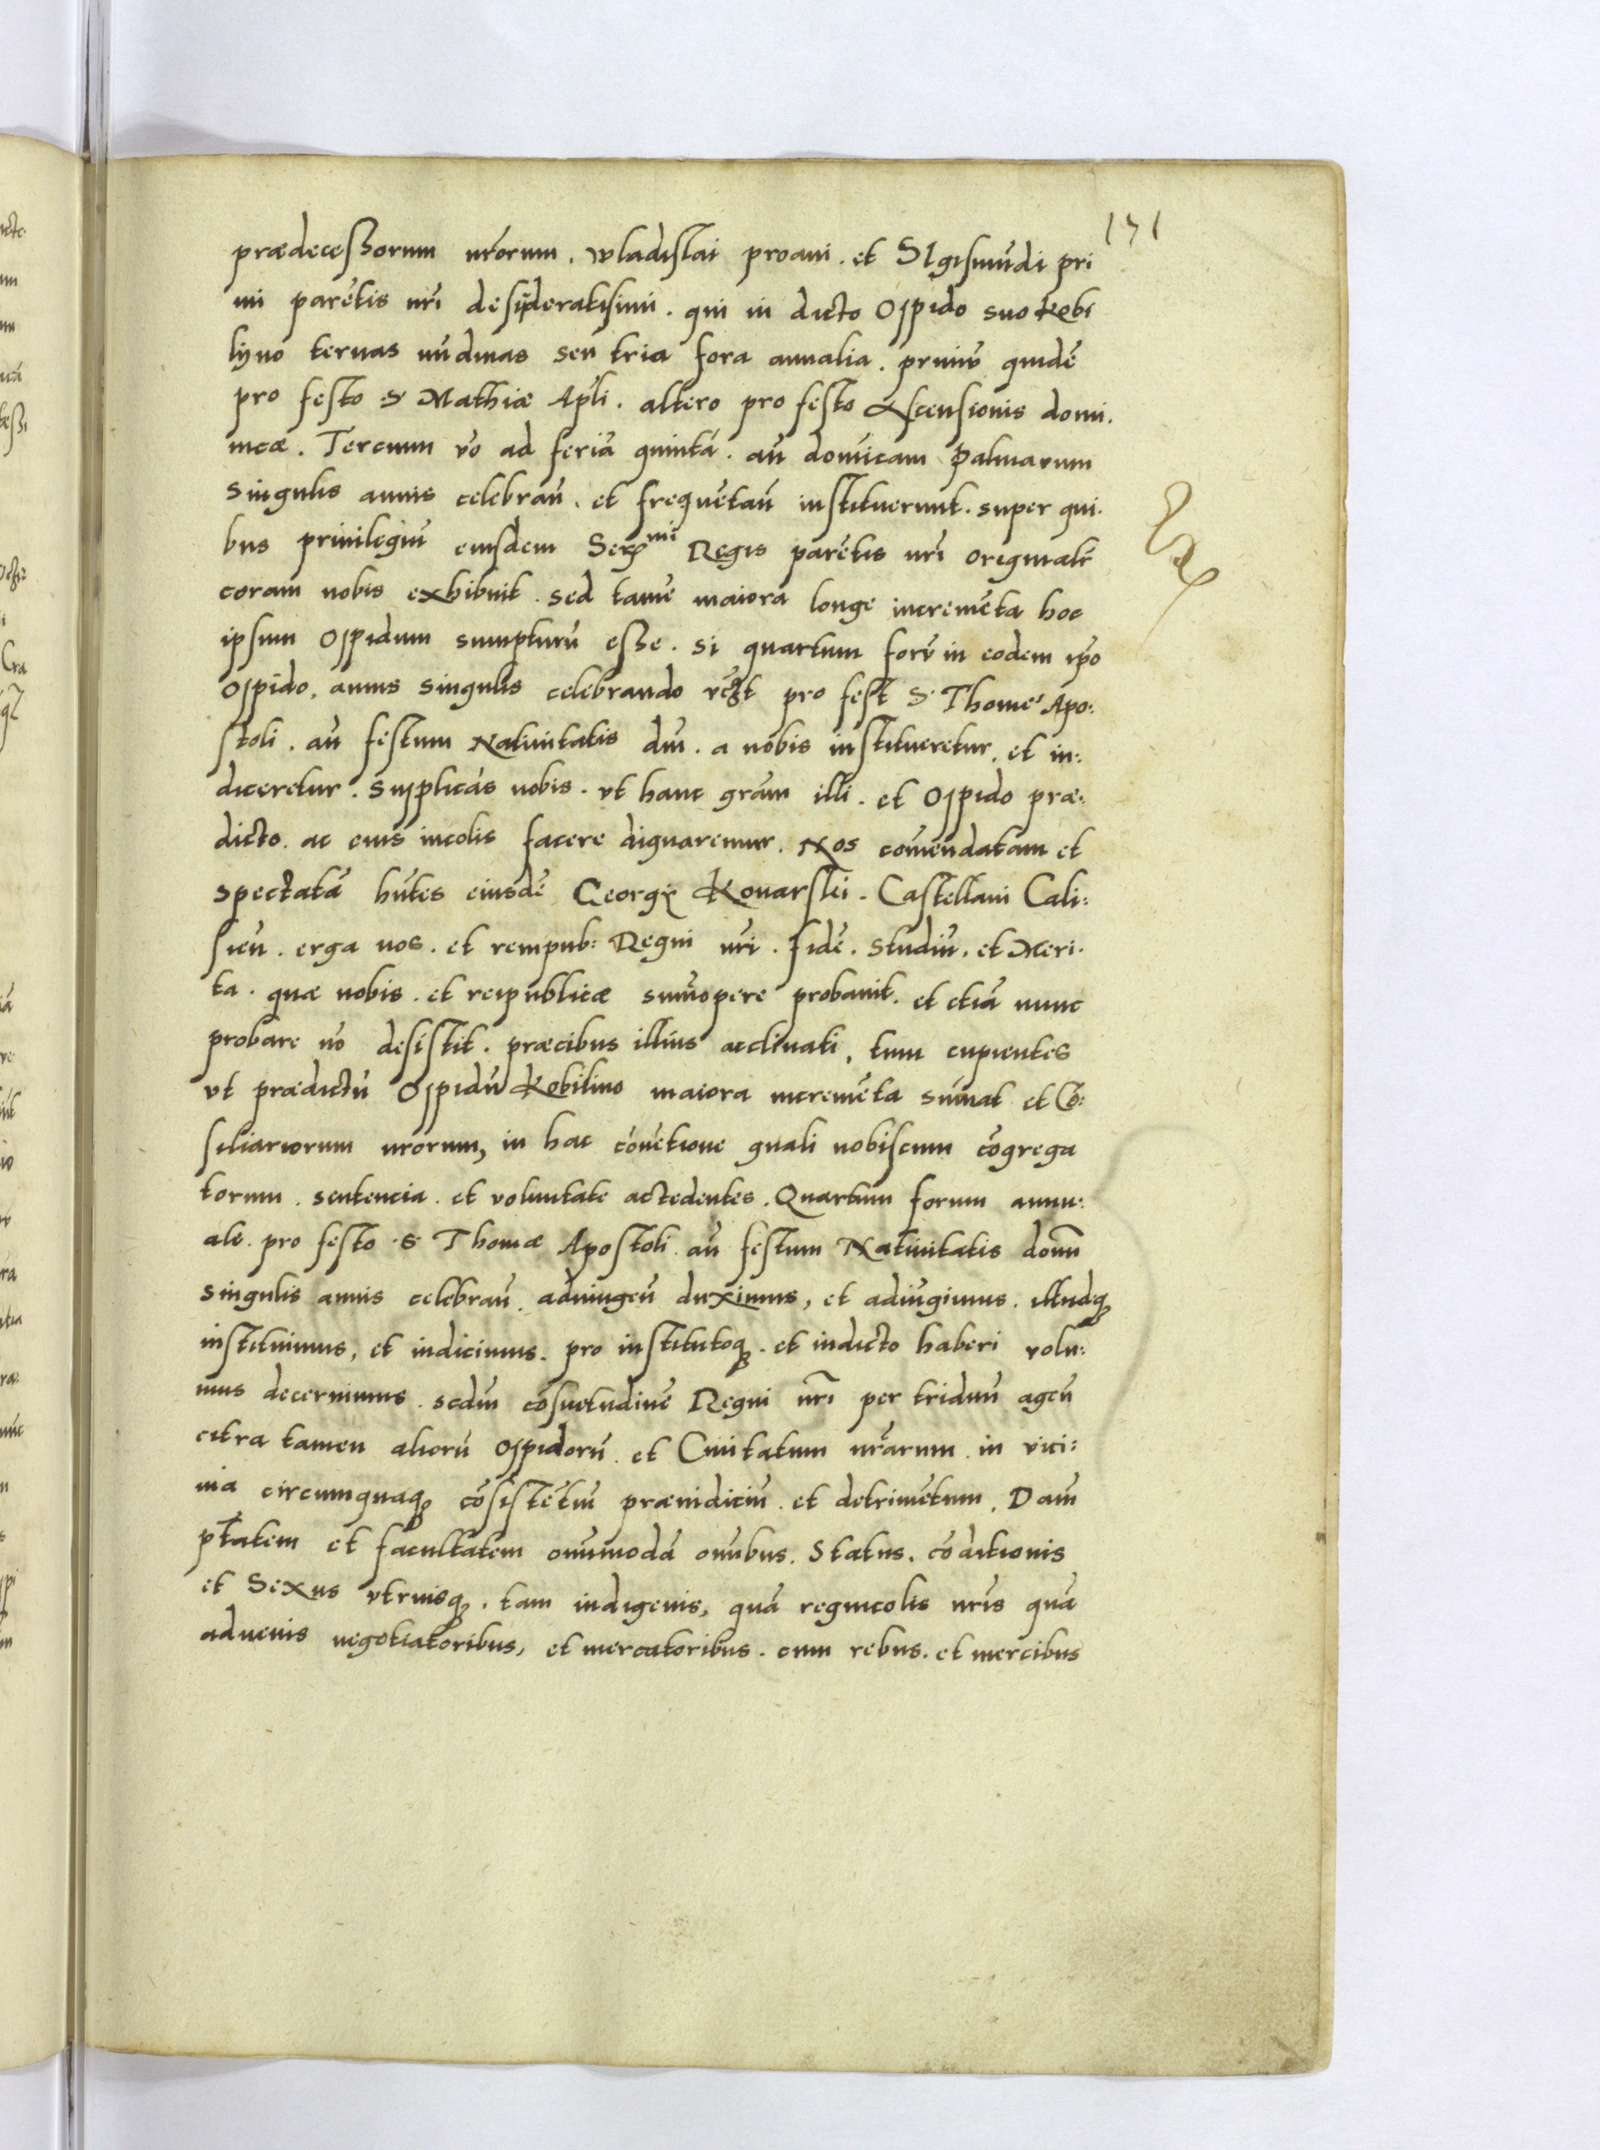 171
prædeceßorum nrõrum . Wladislai proavi . et SIgismũdi pri
mi parẽtis nr̃i desideratisimi . qui in dicto Oppido suo Kobi
lyno ternas nũdinas seu tria fora annalia . primũ quidẽ
pro festo S Mathiæ Apl̃i . altero pro festo Ascensionis domi.
nicæ . Tercium vo ad feriã quintã . añ domĩcam Palmarum
singulis annis celebrañ . et frequẽtañ instituerunt . super qui.
bus priuilegiũ eiusdem Sermi Regis parẽtis nr̃i originale
coram nobis exhibuit . sed tamẽ maiora longe incremẽta hoc
ipsum Oppidum sumpturũ eße . si quartum forũ in eodem ip̃o
Oppido . annis singulis celebrando pro fest S Thome Apo:
stoli . añ festum Natiuitatis dñi . a nobis institueretur . et in:
diceretur . Supplicãs nobis . vt hanc grãm illi . et Oppido præ:
dicto . ac eius incolis facere dignaremur . Nos comẽndatam et
spectatã hñtes eiusdẽ Georgii Konarski . Castellani Cali:
sieñ . erga nos . et rempub: Regni nr̃i . fidẽ . studiũ . et Meri.
ta . quæ nobis . et reipublicæ sum̃opere probauit . et etiã nunc
probare nõ desistit . præcibus illius acclinati , tum cupientes
vt prædictũ Oppidũ Kobilino maiora incremẽta sũmat et Cõ:
siliariorum nrorum, in hac cõuẽtione gnali nobiscum cõgrega
torum . sentencia . et voluntate accedentes . Quartum forum annu:
ale . pro festo . S Thomæ Apostoli . añ festum Natiuitatis domi
singulis annis celebrañ . adiungeñ duximus , et adiũgimus . illudq3
instituimus , et indicimus . pro institutoq3 . et indicto haberi volu:
mus decernimus . secdũ cõsuetudinẽ Regni nr̃i per triduũ ageñ
citra tamen aliorũ Oppidorũ . et Ciuitatum nrãrum . in vici:
nia circumquaq3 cõsistẽtiũ præiudiciũ . et detrimẽtum . Dam̃
ptãtem et facultatem om̃imodã om̃ibus . Status . cõditionis
et Sexus vtriusq3 . tam indigenis , quã regnicolis nr̃is quã
aduenis negotiatoribus , et mercatoribus . cum rebus . et mercibus